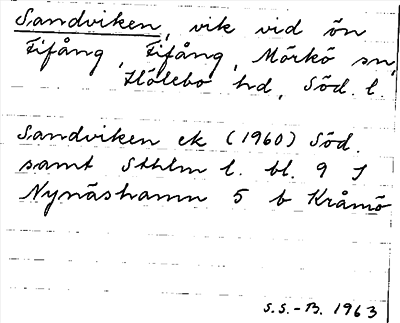 Sandviken, vik vid ön
Fifång, Fifång, Mörkö sn,
Hölebo hd, Söd. l.
Sandviken ek (1960) Söd.
samt Sthlm l. bl. 9 J
Nynäshamn 5 b Kråmö
S.S.-B. 1963